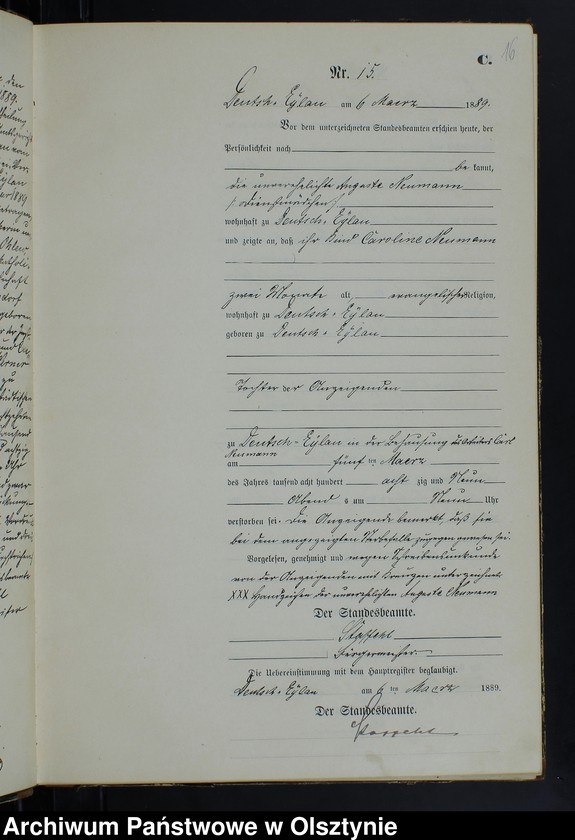 C. 16
Nr. 15.
Deutsch-Eylau am 6 Maerz 1889.
Vor dem unterzeichneten Standesbeamten erschien heute, der
Persönlichkeit nach
be kannt,
die unverehelichte Auguste Neumann
(Dienstmädchen)
wohnhaft zu Deutsch-Eylau
und zeigte an, daß ihr Kind Caroline Neumann
zwei Monate alt, evangelischer Religion,
wohnhaft zu Deutsch-Eylau
geboren zu Deutsch-Eylau
Tochter der Anzeigenden
zu Deutsch-Eylau in der Behausung des Arbeiters Carl
Neumann
am fünf ten Maerz
des Jahres tausend acht hundert acht zig und Neun
Abend s um Neun Uhr
verstorben sei. Die Anzeigende bemerkt, daß sie
bei dem angezeigten Sterbefalle zugegen gewesen sei.
Vorgelesen, genehmigt und wegen Schreibensunkunde
von der Anzeigenden mit Kreuzen unterzeichnet
XXX Handzeichen der unverehelichten Auguste Neumann
Der Standesbeamte.
Bürgermeister
Die Uebereinstimmung mit dem Hauptregister beglaubigt.
Deutsch-Eylau am 6 ten Maerz 1889.
Der Standesbeamte.
Archiwum Państwowe w Olsztynie